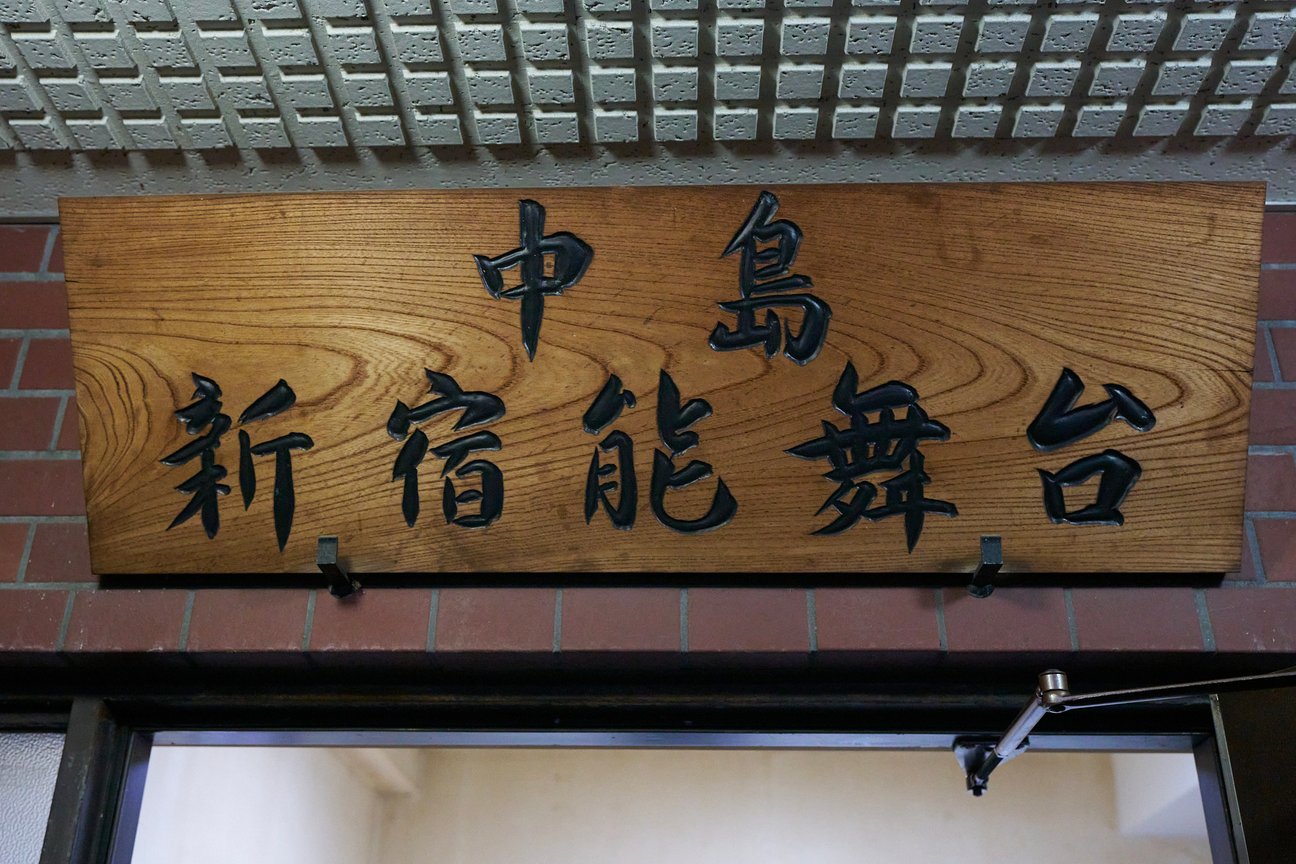 中島
新宿能舞台